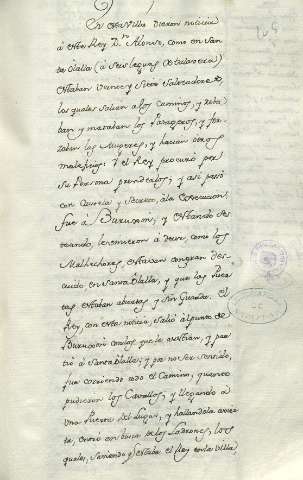 En esta Villa dieron noticia
á este Rey D.n Alonso, como en San-
ta Olalla (á seis leguas de Talavera)
estaban veinte y siete Salteadores,
los quales salian a los caminos, y roba-
ban y mataban los Pasageros, y for-
zaban las Mugeres, y hacian otros
maleficios: Y el Rey procuró por
su Persona prenderlos; y así partió
con cautela y secreto, á la execucion.
fue á Buruxon, y estando ce-
nando, le vinieron á decir, como los
Malhechores, estavan con gran des-
cuido en Santa Olalla, y que las Puer-
tas estaban abiertas y sin Guardas. El
Rey, con esta noticia, salió al punto de
Buruxon con los que le asistian, y par-
tió á Santa Olalla, y por no ser sentido,
fue corriendo todo el Camino, quanto
pudieron los Cavallos; y llegando a
una Puerta del Lugar, y hallandola avier-
ta, entró en busca de los Ladrones, los
quales, sabiendo q estaba el Rey en la Villa